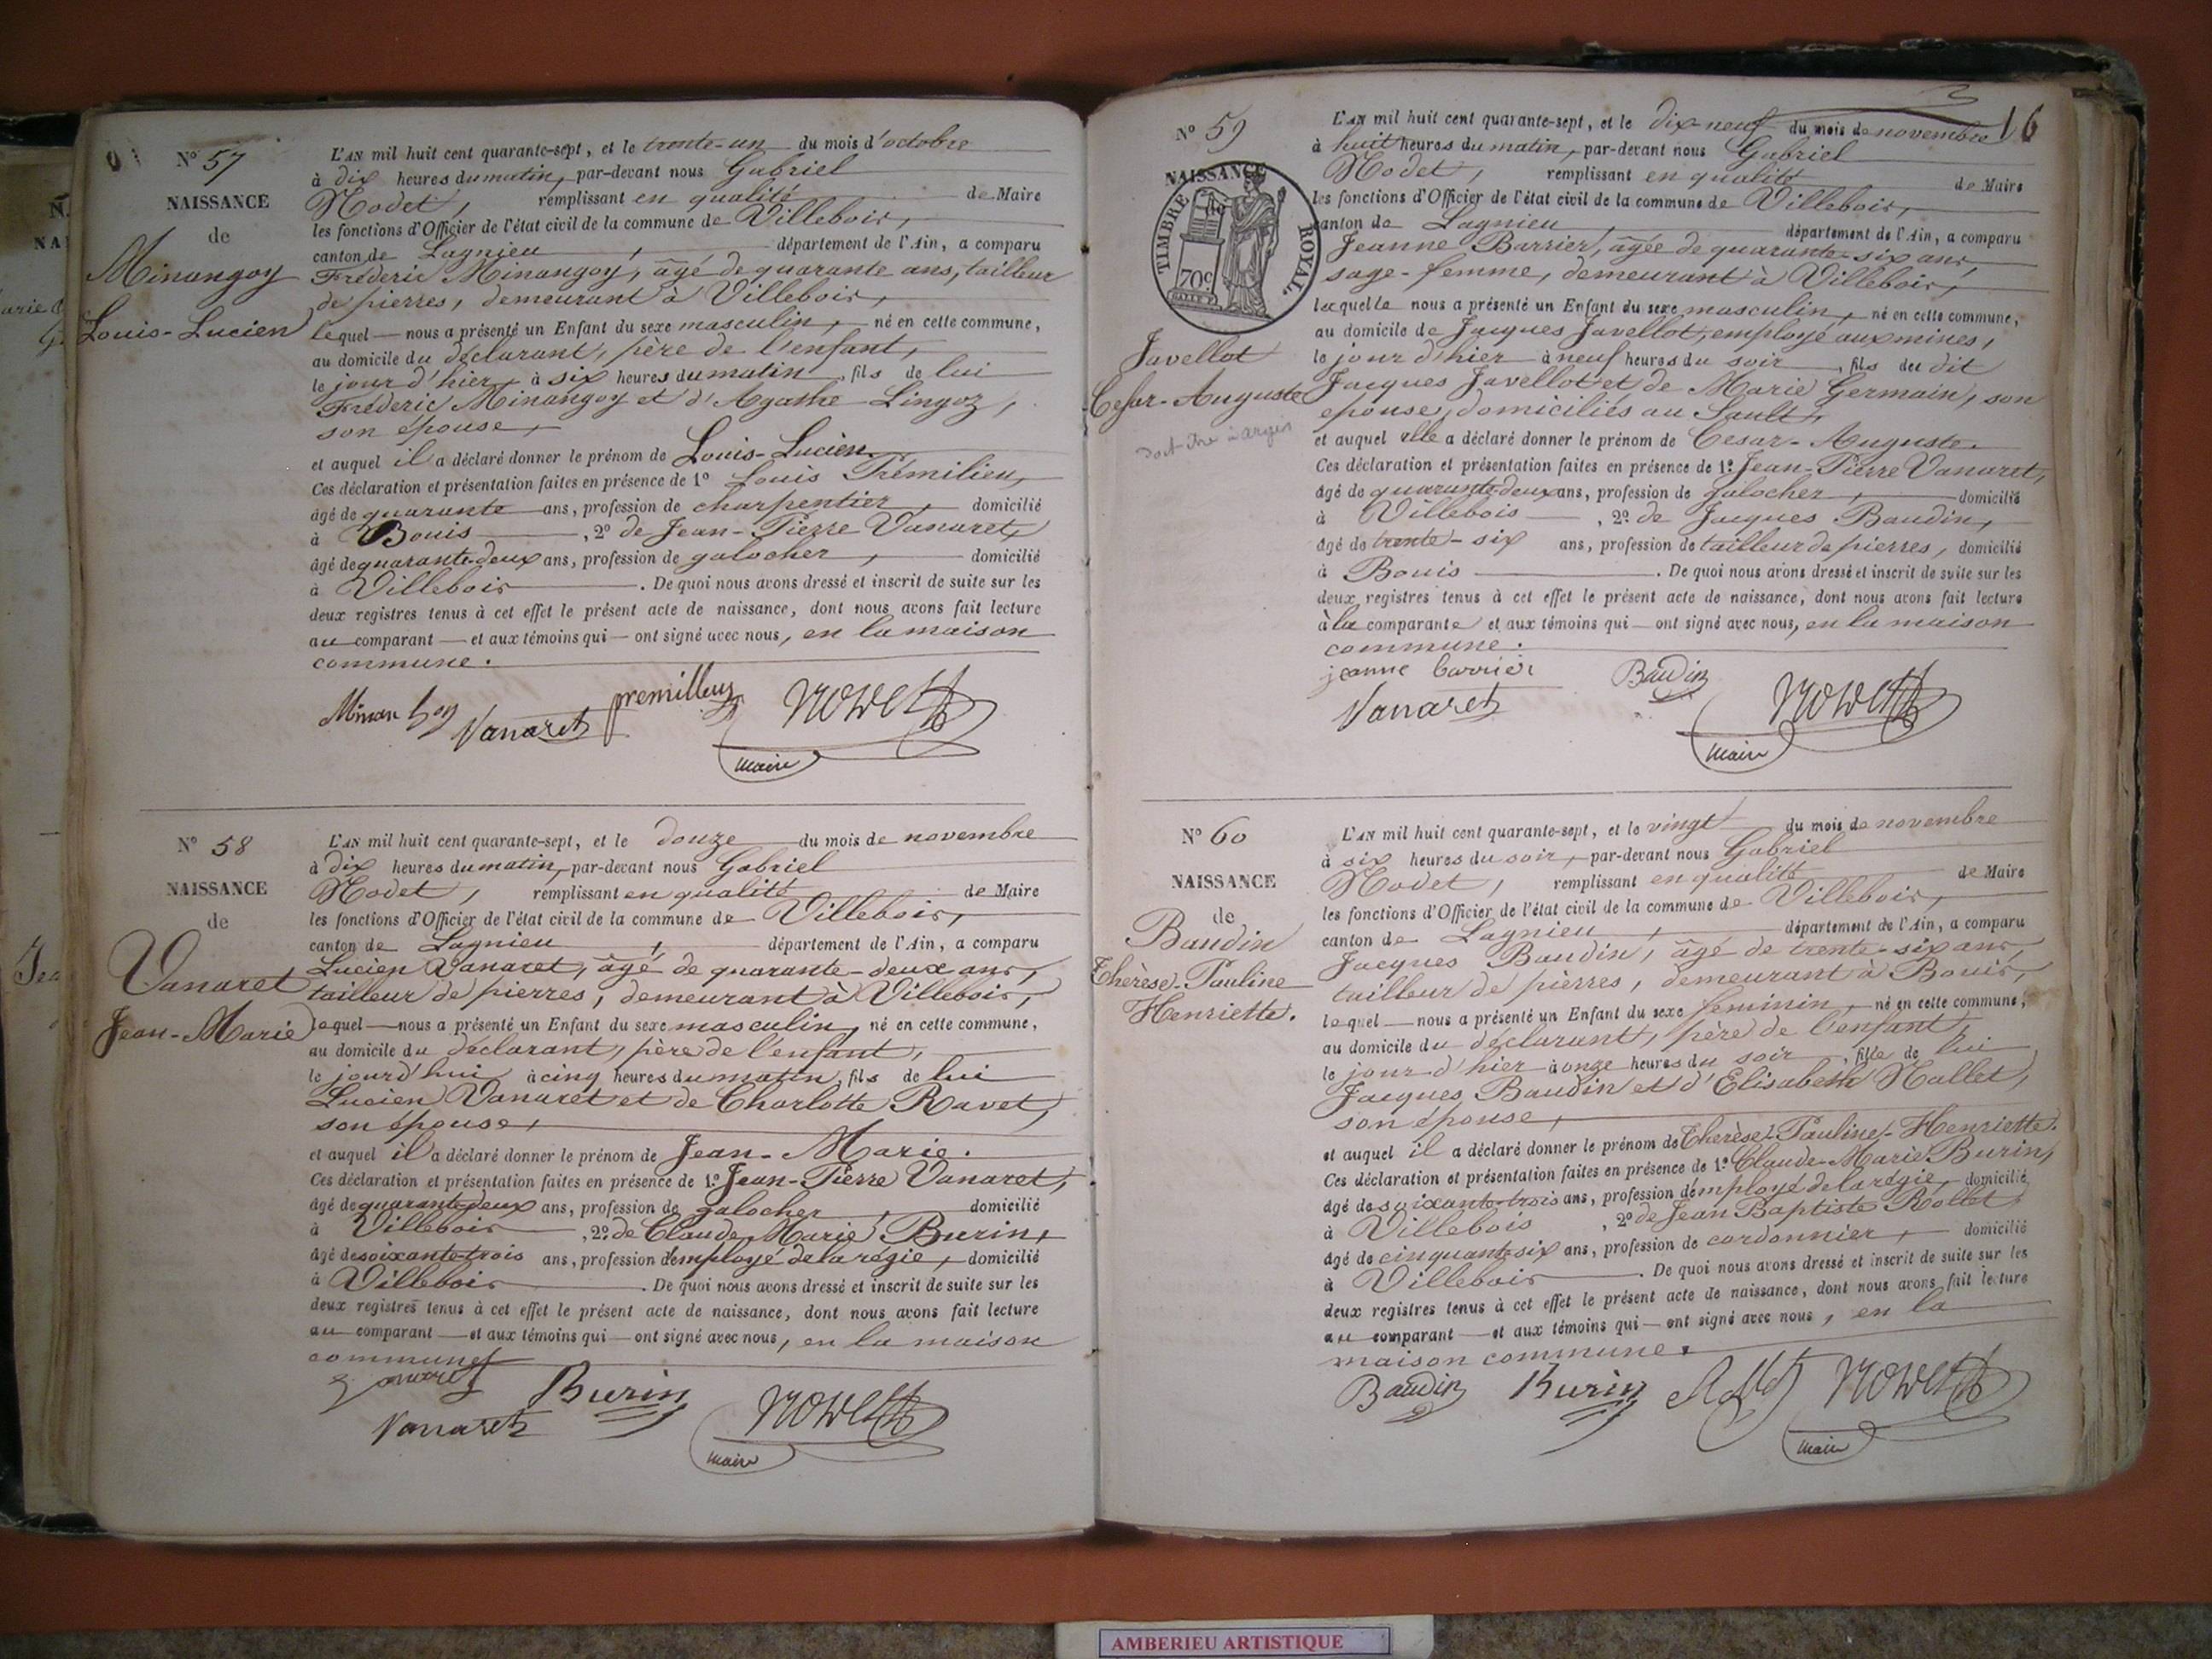 Nº 57
NAISSANCE
de
Minangoy
Louis-Lucien
L'AN mil huit cent quarante-sept, et le trente-un du mois d'octobre
à dix heures du matin, par-devant nous Gabriel
Nodet, remplissant en qualité de Maire
les fonctions d'Officier de l'état civil de la commune de Villebois,
canton de Lagnieu, département de l'Ain, a comparu
Fréderic Minangoy, âgé de quarante ans, tailleur
de pierres, demeurant à Villebois,
lequel nous a présenté un Enfant du sexe masculin, né en cette commune,
au domicile du déclarant, père de l'enfant,
le jour d'hier à six heures du matin, fils de lui
Fréderic Minangoy et d'Agathe Lingoz,
son épouse,
et auquel il a déclaré donner le prénom de Louis-Lucien.
Ces déclaration et présentation faites en présence de 1º Louis Trémilieu,
âgé de quarante ans, profession de charpentier, domicilié
à Bouis, 2º de Jean-Pierre Vanaret,
âgé de quarante-deux ans, profession de galocher, domicilié
à Villebois. De quoi nous avons dressé et inscrit de suite sur les
deux registres tenus à cet effet le présent acte de naissance, dont nous avons fait lecture
au comparant et aux témoins qui ont signé avec nous, en la maison
commune.
Minangoy Vanaret premilleux Nodet
maire
Nº 58
NAISSANCE
de
Vanaret
Jean-Marie
L'AN mil huit cent quarante-sept, et le douze du mois de novembre
à dix heures du matin, par-devant nous Gabriel
Nodet, remplissant en qualité de Maire
les fonctions d'Officier de l'état civil de la commune de Villebois,
canton de Lagnieu, département de l'Ain, a comparu
Lucien Vanaret, âgé de quarante-deux ans,
tailleur de pierres, demeurant à Villebois,
lequel nous a présenté un Enfant du sexe masculin, né en cette commune,
au domicile du déclarant, père de l'enfant,
le jourd'hui à cinq heures du matin, fils de lui
Lucien Vanaret et de Charlotte Ravet,
son épouse,
et auquel il a déclaré donner le prénom de Jean-Marie.
Ces déclaration et présentation faites en présence de 1º Jean-Pierre Vanaret,
âgé de quarante-deux ans, profession de galocher, domicilié
à Villebois, 2º de Claude Marie Burin,
âgé de soixante-trois ans, profession d'employé de la régie, domicilié
à Villebois. De quoi nous avons dressé et inscrit de suite sur les
deux registres tenus à cet effet le présent acte de naissance, dont nous avons fait lecture
au comparant et aux témoins qui ont signé avec nous, en la maison
commune.
Vanaret Burin Nodet
Vanaret
maire
16
Nº 59
NAISSANCE
de
TIMBRE ROYAL.
70c
Javellot
Cesar-Auguste
L'AN mil huit cent quarante-sept, et le dix-neuf du mois de novembre
à huit heures du matin, par-devant nous Gabriel
Nodet, remplissant en qualité de Maire
les fonctions d'Officier de l'état civil de la commune de Villebois,
canton de Lagnieu département de l'Ain, a comparu
Jeanne Barrier, âgée de quarante-six ans,
sage-femme, demeurant à Villebois,
lequelle nous a présenté un Enfant du sexe masculin, né en cette commune,
au domicile de Jacques Javellot, employé aux mines,
le jour d'hier à neuf heures du soir, fils du dit
Jacques Javellot et de Marie Germain, son
epouse, domiciliés au Sault,
et auquel elle a déclaré donner le prénom de Cesar-Auguste.
Ces déclaration et présentation faites en présence de 1º Jean-Pierre Vanaret,
âgé de quarante-deux ans, profession de galocher, domicilié
à Villebois, 2º de Jacques Baudin,
âgé de trente-six ans, profession de tailleur de pierres, domicilié
à Bouis. De quoi nous avons dressé et inscrit de suite sur les
deux registres tenus à cet effet le présent acte de naissance, dont nous avons fait lecture
à la comparante et aux témoins qui ont signé avec nous, en la maison
commune.
jeanne barrier Baudin
Vanaret Nodet
maire
Nº 60
NAISSANCE
de
Baudin
Thérèse-Pauline
Henriette.
L'AN mil huit cent quarante-sept, et le vingt du mois de novembre
à six heures du soir, par-devant nous Gabriel
Nodet, remplissant en qualité de Maire
les fonctions d'Officier de l'état civil de la commune de Villebois,
canton de Lagnieu, département de l'Ain, a comparu
Jacques Baudin, âgé de trente-six ans,
tailleur de pierres, demeurant à Bouis,
lequel nous a présenté un Enfant du sexe feminin, né en cette commune,
au domicile du déclarant, père de l'enfant,
le jour d'hier à onze heures du soir, fille de lui
Jacques Baudin et d'Elisabeth Nallet,
son épouse,
et auquel il a déclaré donner le prénom de Therèse-Pauline-Henriette.
Ces déclaration et présentation faites en présence de 1º Claude-Marie Burin,
âgé de soixante-trois ans, profession d'employé de la régie, domicilié
à Villebois, 2º de Jean Baptiste Rollet,
âgé de cinquante-six ans, profession de cordonnier, domicilié
à Villebois. De quoi nous avons dressé et inscrit de suite sur les
deux registres tenus à cet effet le présent acte de naissance, dont nous avons fait lecture
au comparant et aux témoins qui ont signé avec nous, en la
maison commune.
Baudin Burin Rollet Nodet
maire
AMBERIEU ARTISTIQUE